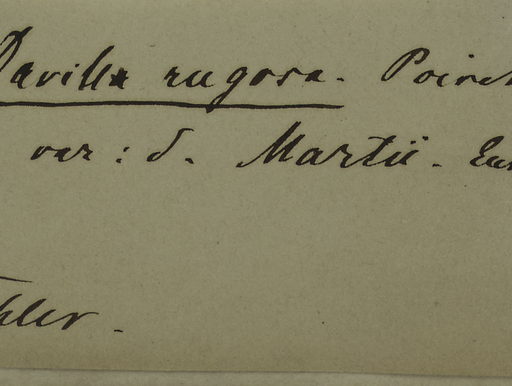 Davilla rugosa. Poiret
var: δ. Martii.